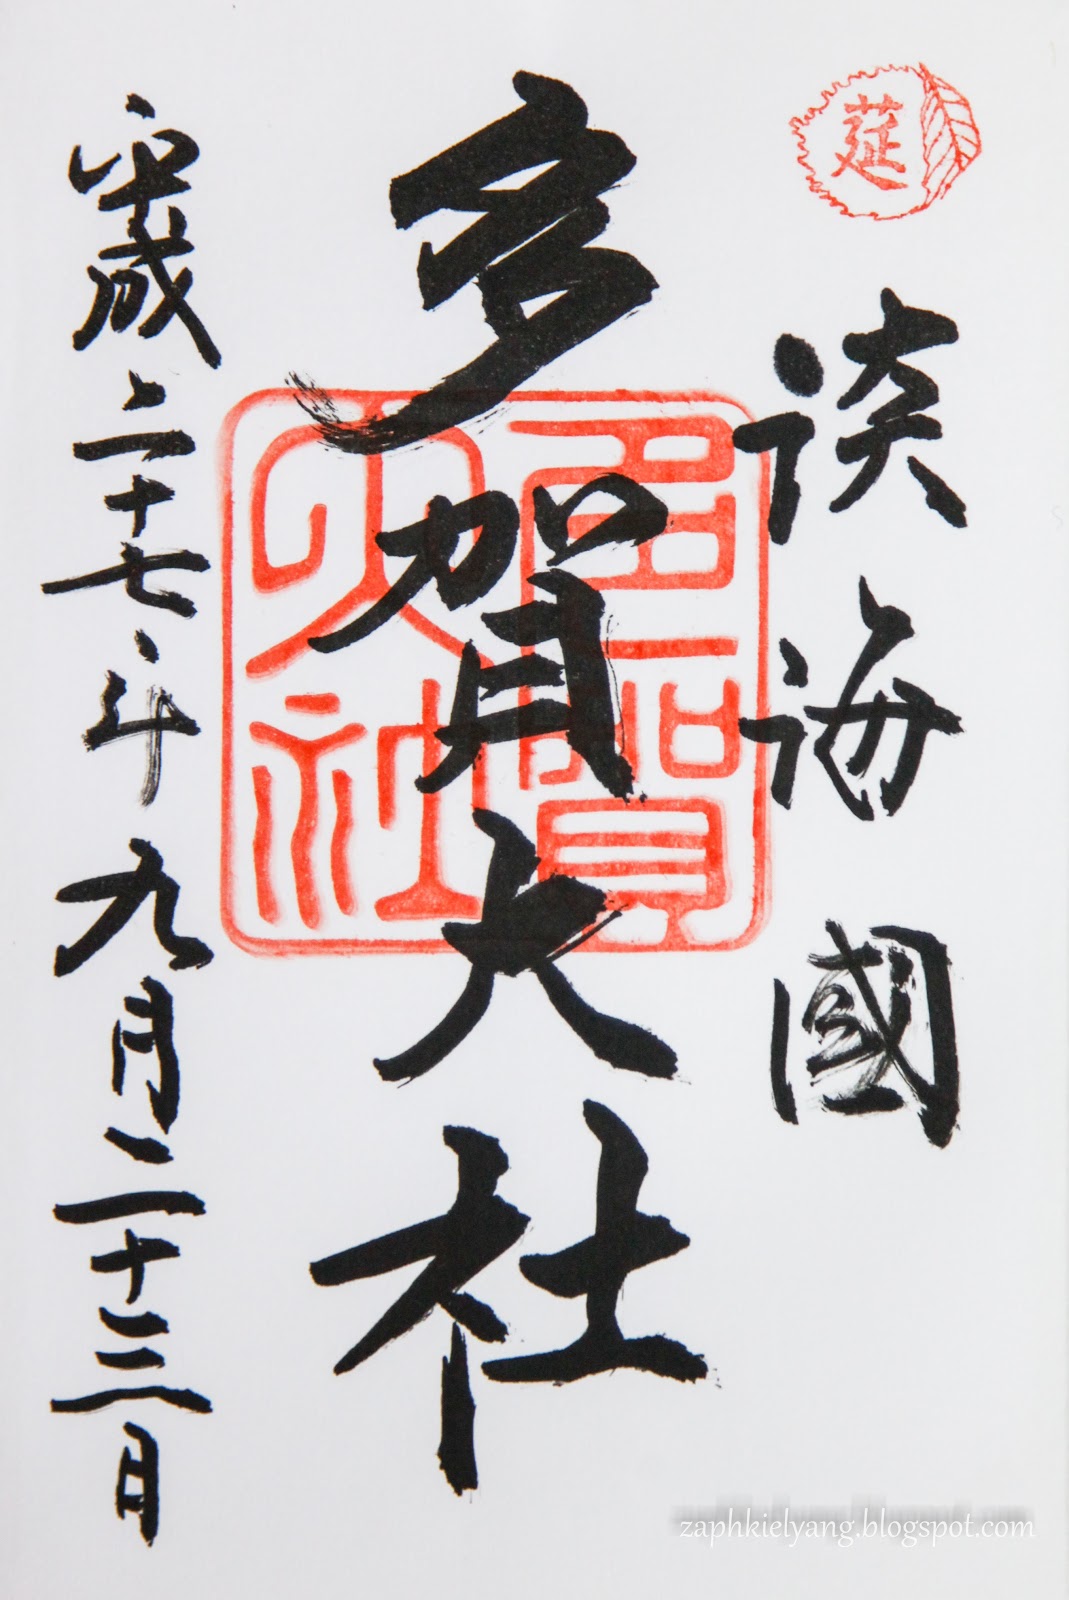 莚
淡海國
多賀大社
多賀
大社
平成二十七年九月二十三日
zaphkielyang.blogspot.com